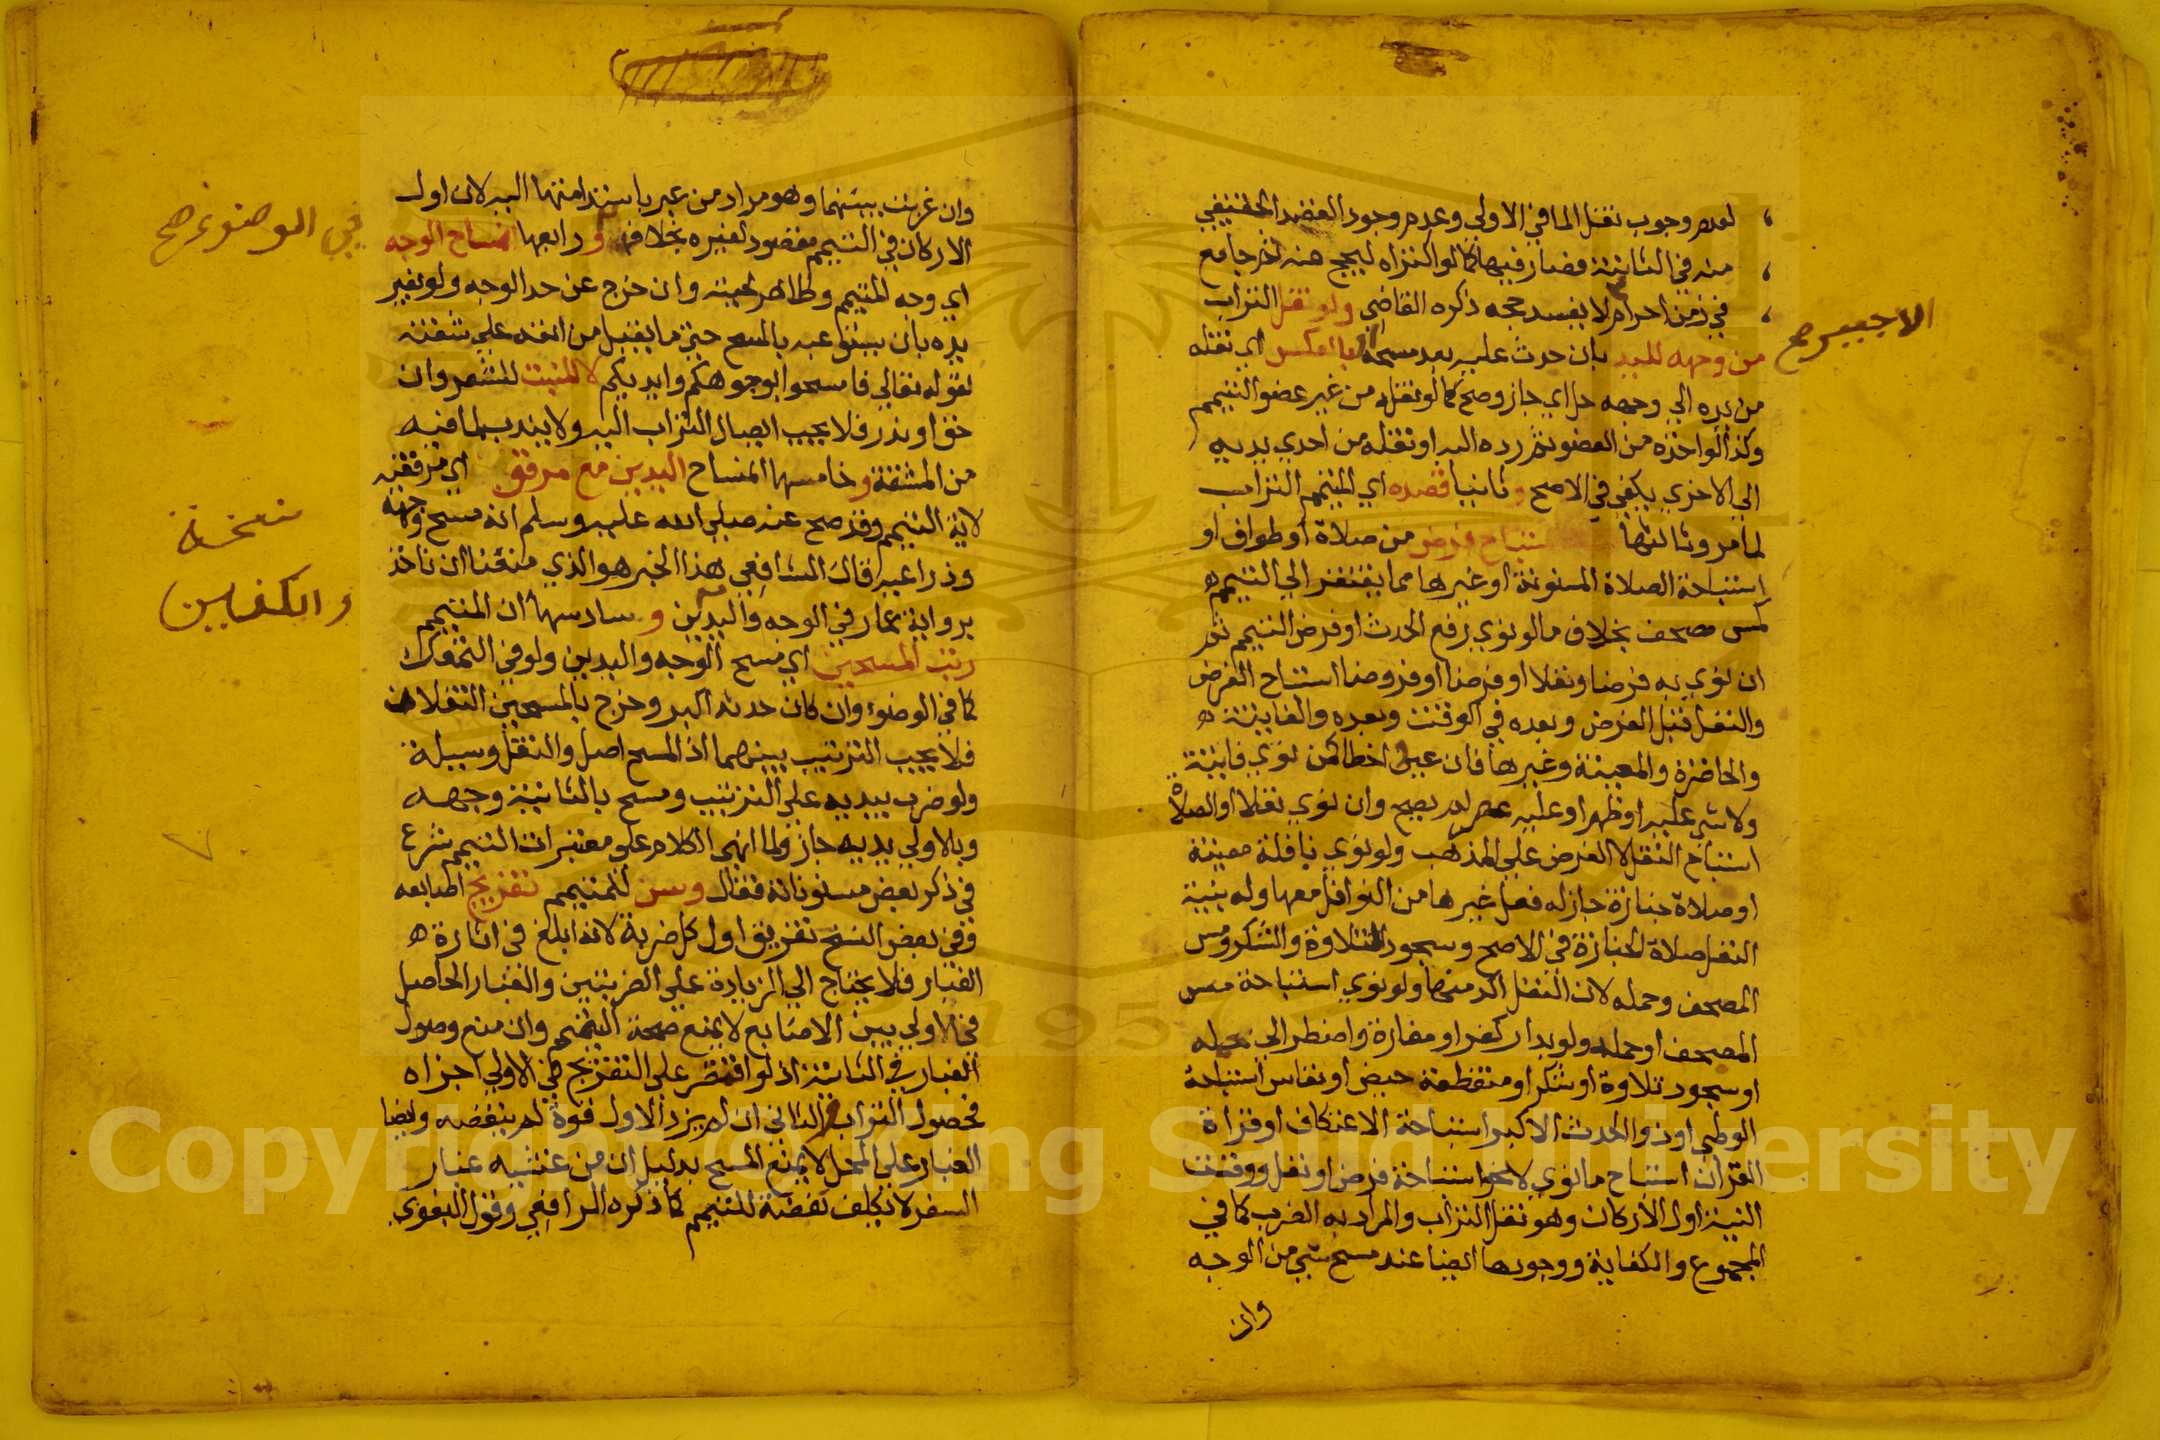 لعدم وجوب نقل الما في الاولي وعدم وجود القصد الحقيقي
منه في الثانية فصار فيها كما لو اكتراه ليحج عنه ثم جامع
في زمن احرامه لا يفسد حجه ذكره القاضي ولو نقل التراب
من وجهه لليد بان حدث عليه بعد مسحه او بالعكس اي نقله
من يده الي وجهه حل اي جاز وصح كما لو نقله من غير عضو التيمم
وكذا لو اخذه من العضو ثم رده اليه او نقله من احدي يديه
الي الاخري يكفي في الاصح و ثانيها قصده اي المتيمم التراب
لما مر و ثالثها استباح فرض من صلاة او طواف او
استباحة الصلاة المسنونة او غيرها مما يفتقر الي التيمم
كمس مصحف بخلاف ما لو نوي رفع الحدث او فرض التيمم ثم
ان نوي به فرضا ونفلا او فرضا او فروضا استباح الفرض
والنفل قبل الفرض وبعده في الوقت وبعده والفايتة
والحاضرة والمعينة وغيرها فان عين واخطا كمن نوي فايتة
ولا شي عليه او ظهرا وعليه عصر لم يصح وان نوي نفلا او الصلاة
استباح النفل لا الفرض علي المذهب ولو نوي نافلة معينة
او صلاة جنازة جاز له فعل غيرها من النوافل معها وله بنية
النفل صلاة الجنازة في الاصح وسجود التلاوة والشكر ومس
المصحف وحمله لان النفل اكد منها ولو نوي استباحة مس
المصحف او حمله ولو بدار كفر او مفازة واضطر الي حمله
او سجود تلاوة او شكر او منقطعة حيض او نفاس استباحة
الوطي او ذو الحدث الاكبر استباحة الاعتكاف او قراة
القران استباح ما نوي لا نحو استباحة فرض او نفل ووقت
النية اول الاركان وهو نقل التراب والمراد به الضرب كما في
المجموع والكفاية ووجوبها ايضا عند مسح شي من الوجه
وان
وان غربت بينهما وهو مراد من عبر باستدامتها اليه لان اول
الاركان في التيمم مقصود لغيره بخلافه و رابعها مساح الوجه
في الوضوء صح
اي وجه المتيمم وظاهر لحيته وان خرج عن حد الوجه ولو بغير
يده بان يستوعبه بالمسح حتي ما يقبل من انفه علي شفته
لقوله تعالي فامسحوا بوجوهكم وايديكم لا المنبت للشعر وان
خف او ندر فلا يجب ايصال التراب اليه ولا يندب لما فيه
من المشقة و خامسها امساح اليدين مع مرفق اي مرفقيه
لاية التيمم وقد صح عنه صلي الله عليه وسلم انه مسح وجهه
وذراعيه قال الشافعي هذا الخبر هو الذي منعنا ان ناخذ
نسخة
والكفين
برواية عمار في الوجه واليدين و سادسها ان المتيمم
رتب المسحين اي مسح الوجه واليدين ولو في التمعك
كما في الوضوء وان كان حدثه اكبر وخرج بالمسحين النقلان
فلا يجب الترتيب بينهما اذ المسح اصل والنقل وسيلة
ولو ضرب بيديه علي الترتيب ومسح بالثانية وجهه
وبالاولي يديه جاز ولما انهي الكلام علي معتبرات التيمم شرع
في ذكر بعض مسنوناته فقال وسن لمتيمم تفريج اصابعه
وفي بعض النسخ تفريق اول كل ضربة لانه ابلغ في اثارة
الغبار فلا يحتاج الي الزيادة علي الضربتين والغبار الحاصل
في الاولي بين الاصابع لا يمنع صحة التيمم وان منع وصول
الغبار في الثانية اذ لو اقتصر علي التفريج في الاولي اجزاه
فحصول التراب الثاني ان لم يزد الاول قوة لم ينقصه وايضا
الغبار علي المحل لا يمنع المسح بدليل ان من غشيه غبار
السفر لا يكلف نفضه للتيمم كما ذكره الرافعي وقول البغوي
Copyright © King Saud University
1957